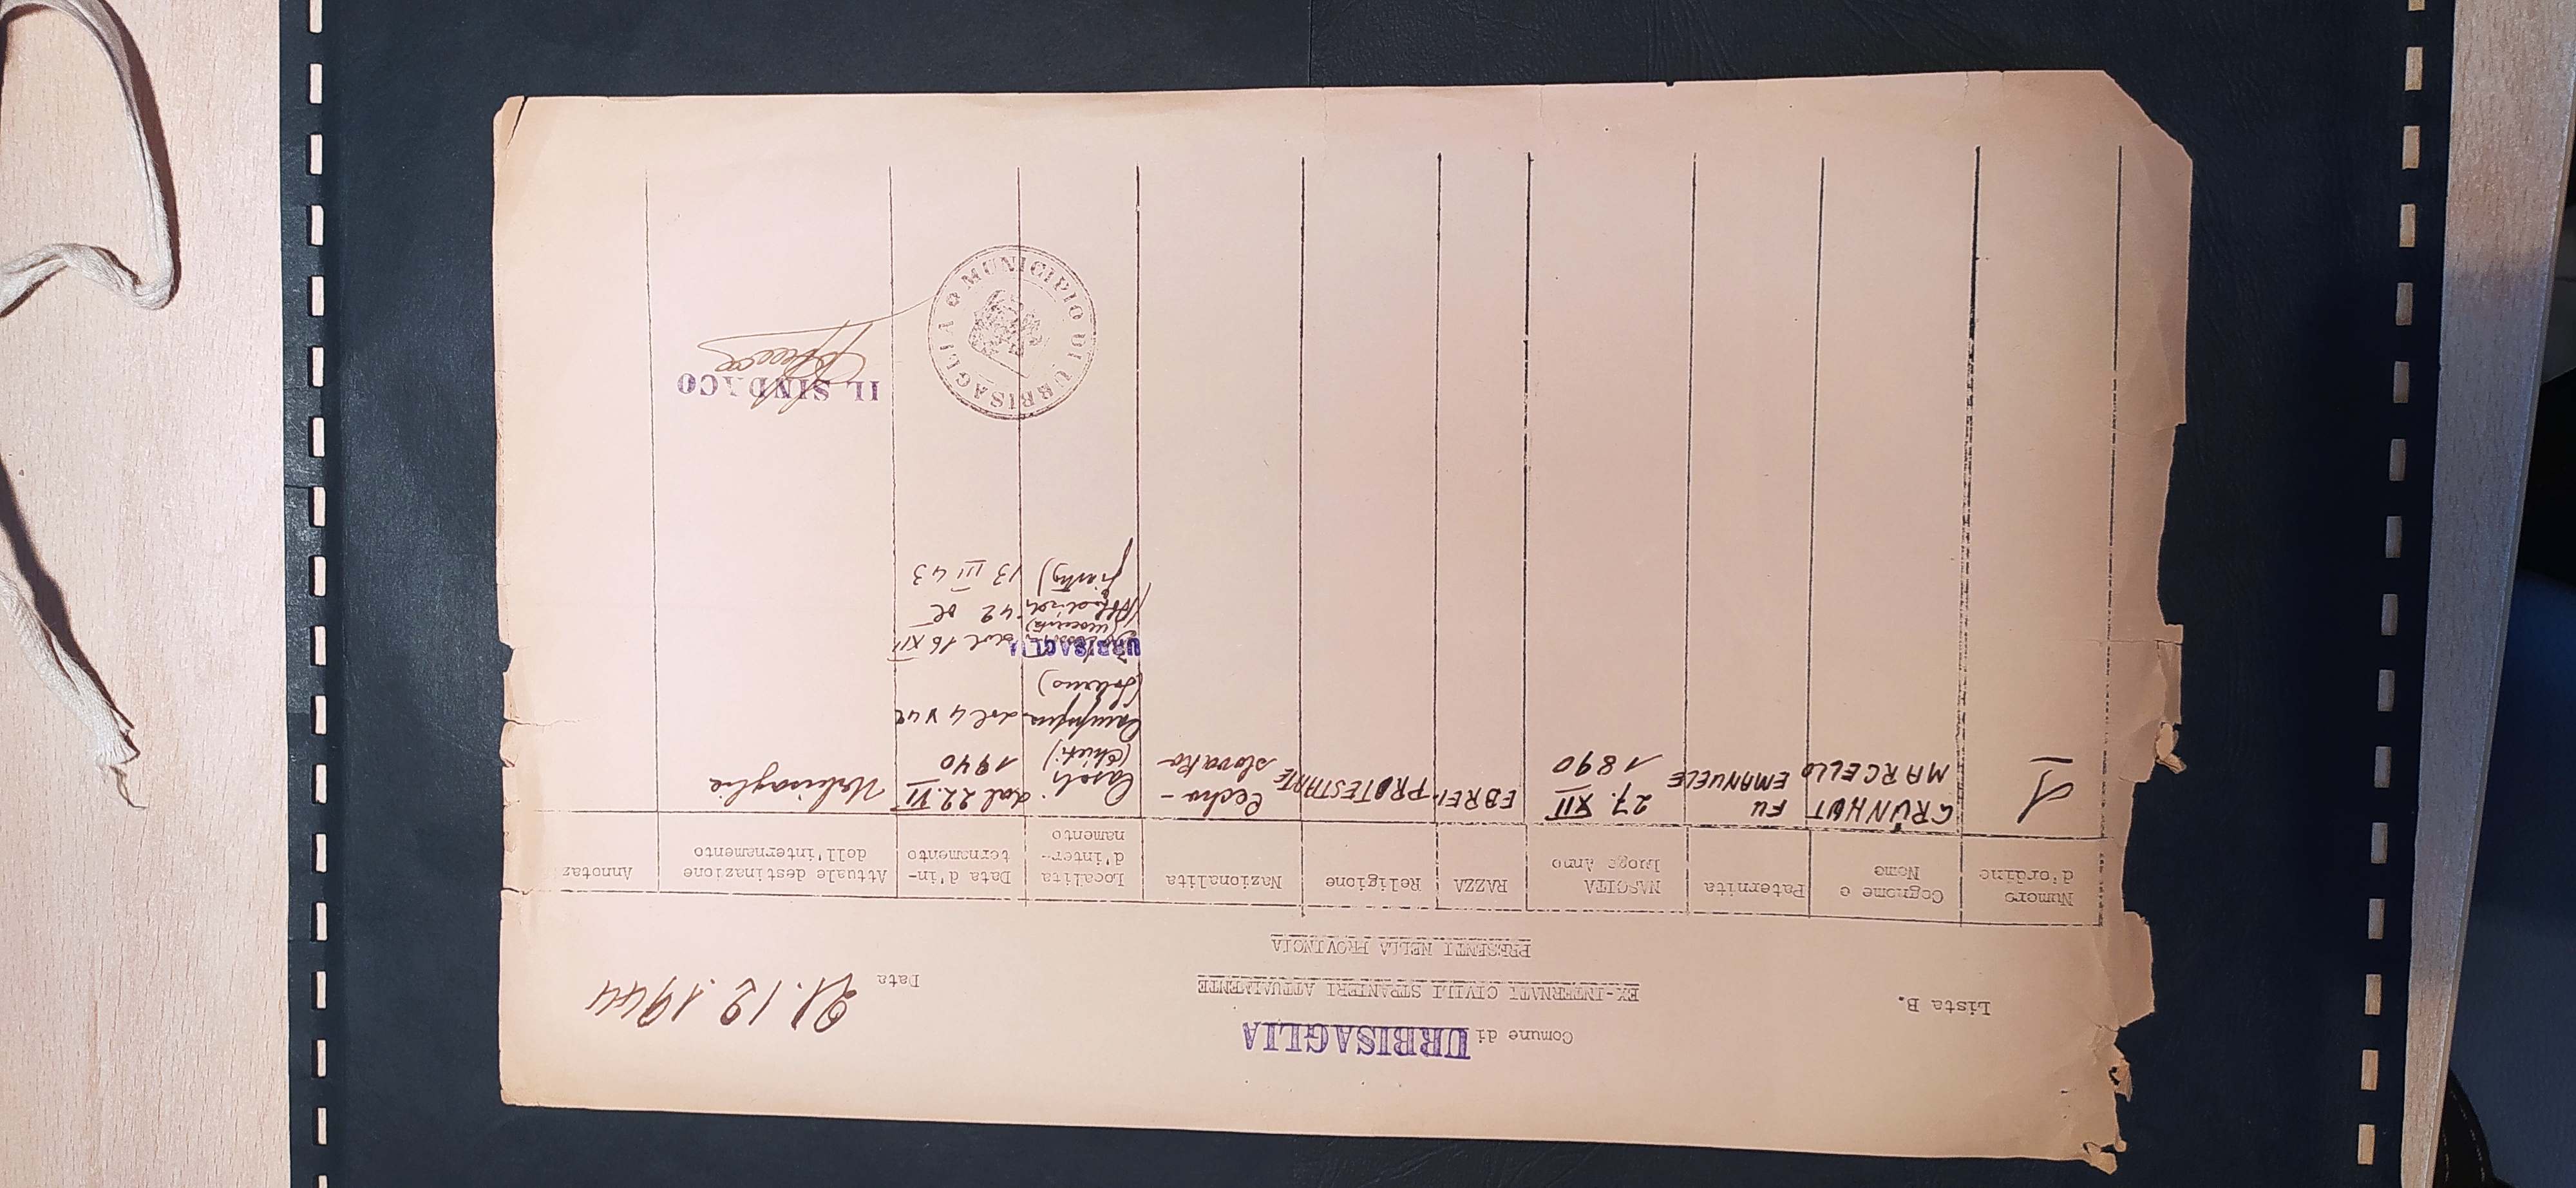 Comune di URBISAGLIA
Lista B.
EX-INTERNATI CIVILI STRANIERI ATTUALMENTE
PRESENTI NELLA PROVINCIA
Data 21.12.1944
Numero d'ordine
Cognome e Nome
Paternita
NASCITA
Luogo Anno
RAZZA
Religione
Nazionalita
Localita
d'inter-
namento
Data d'in-
ternamento
Attuale destinazione
dell'internamento
Annotaz
1
GRÜNHUT
MARCELLO
FU
EMANUELE
27. XII
1890
EBREI
PROTESTANTE
Cecho-
slovako
Casoli
(Chieti)
dal 22. VI
1940
Urbisaglia
Campagna
(Salerno)
dal 4 V 42
URBISAGLIA
(Macerata)
(Abbadia di
Fiastra)
dal 16 XII
42 al
13 III 43
IL SINDACO
MUNICIPIO DI URBISAGLIA